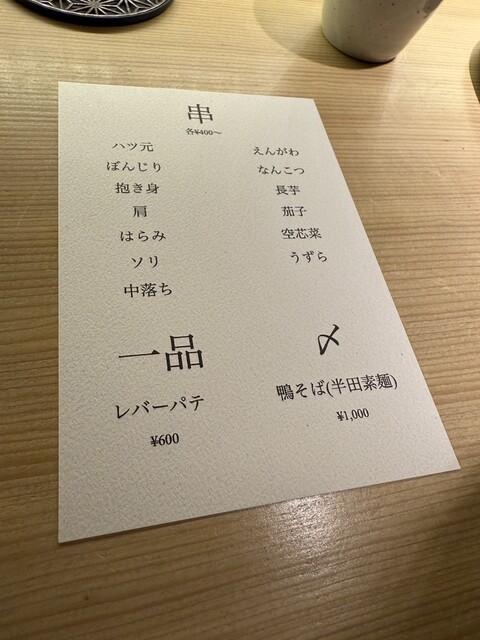 串
各¥400〜
ハツ元
ぼんじり
抱き身
肩
はらみ
ソリ
中落ち
えんがわ
なんこつ
長芋
茄子
空芯菜
うずら
一品
レバーパテ
¥600
〆
鴨そば(半田素麺)
¥1,000